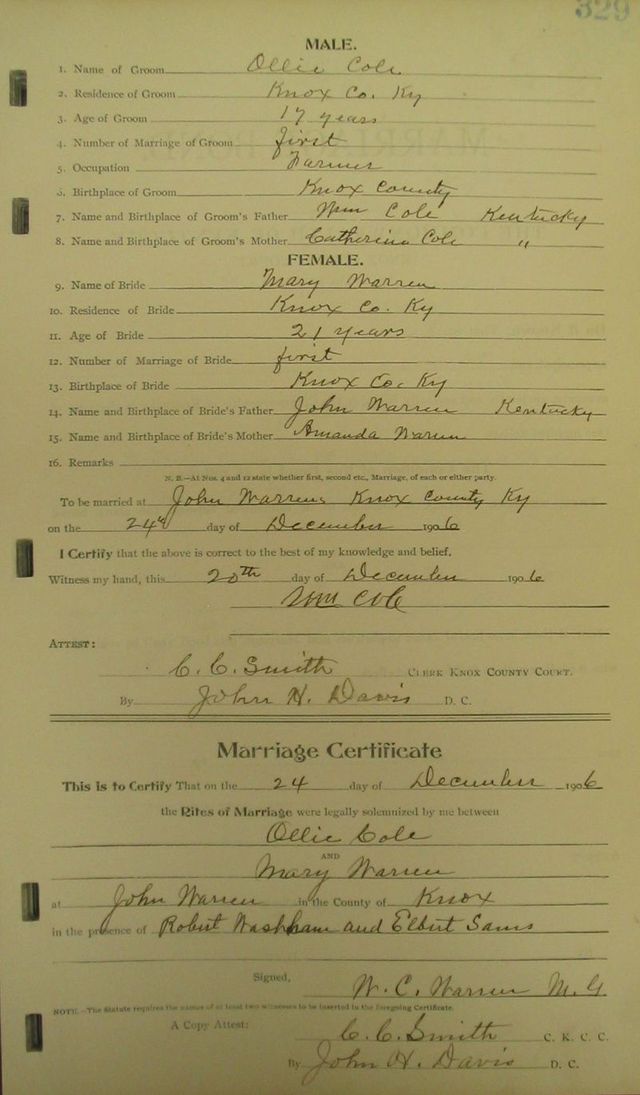 329
MALE.
1. Name of Groom Ollie Cole
2. Residence of Groom Knox Co. Ky
3. Age of Groom 17 years
4. Number of Marriage of Groom first
5. Occupation Farmer
6. Birthplace of Groom Knox County
7. Name and Birthplace of Groom's Father Wm Cole Kentucky
8. Name and Birthplace of Groom's Mother Catherine Cole "
FEMALE.
9. Name of Bride Mary Warren
10. Residence of Bride Knox Co. Ky
11. Age of Bride 21 years
12. Number of Marriage of Bride first
13. Birthplace of Bride Knox Co. Ky
14. Name and Birthplace of Bride's Father John Warren Kentucky
15. Name and Birthplace of Bride's Mother Amanda Warren
16. Remarks
N. B.—At Nos. 4 and 12 state whether first, second etc., Marriage, of each or either party.
To be married at John Warrens Knox County Ky
on the 24th day of December 1906
I Certify that the above is correct to the best of my knowledge and belief.
Witness my hand, this 20th day of December 1906
Wm Cole
ATTEST:
C. C. Smith CLERK KNOX COUNTY COURT.
By John H. Davis D. C.
Marriage Certificate
This is to Certify That on the 24 day of December 1906
the Rites of Marriage were legally solemnized by me between
Ollie Cole
AND
Mary Warren
at John Warren in the County of Knox
in the presence of Robert Washham and Elbert Sams
Signed, W. C. Warren M. G.
NOTE.—The Statute requires the names of at least two witnesses to be inserted in the foregoing Certificate.
A Copy Attest: C. C. Smith C. K. C. C.
By John H. Davis D. C.